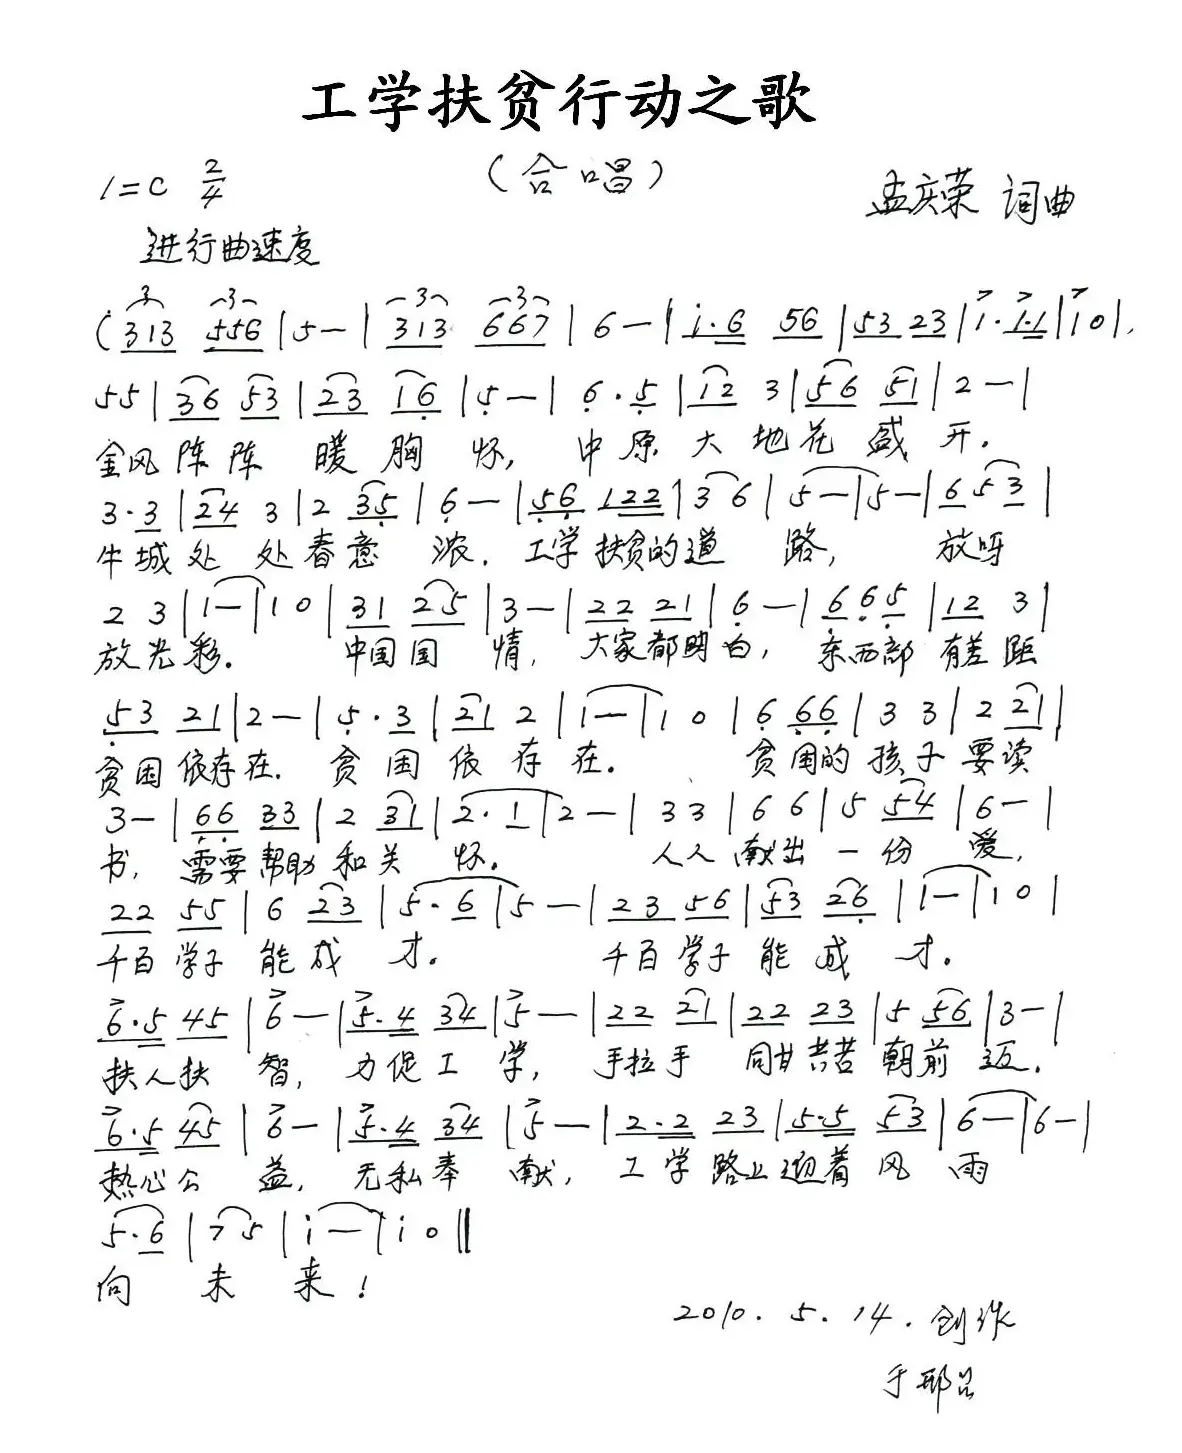 工学扶贫行动之歌
(合唱)
1=C 2/4
孟庆荣 词曲
进行曲速度
(313 556|5—|313 667|6—|i·6 56|53 23|1·1·1|10|,
55|36 53|23 16|5—|6·5|12 3|56 51|2—|
金风阵阵 暖胸怀, 中原大地花盛开.
3·3|24 3|2 35|6—|56 122|3 6|5—|5—|6 5 3|
牛城处处春意浓. 工学扶贫的道路, 放呀
2 3|1—|1 0|31 25|3—|22 21|6—|6 6 5|12 3|
放光彩. 中国国情, 大家都明白, 东西部有差距
53 21|2—|5·3|21 2|1—|1 0|6 66|3 3|2 21|
贫困依存在. 贫困依存在. 贫困的孩子要读
3—|66 33|2 31|2·1|2—|3 3|6 6|5 54|6—|
书, 需要帮助和关怀. 人人献出一份爱,
22 55|6 23|5·6|5—|23 56|53 26|1—|1 0|
千百学子能成才. 千百学子能成才.
6·5 45|6—|5·4 34|5—|22 21|22 23|5 56|3—|
扶人扶智, 力促工学, 手拉手 同甘共苦朝前迈.
6·5 45|6—|5·4 34|5—|2·2 23|5·5 53|6—|6—|
热心公益, 无私奉献, 工学路上迎着风雨
5·6|7 5|i—|i 0‖
向未来!
2010.5.14.创作
于邢台